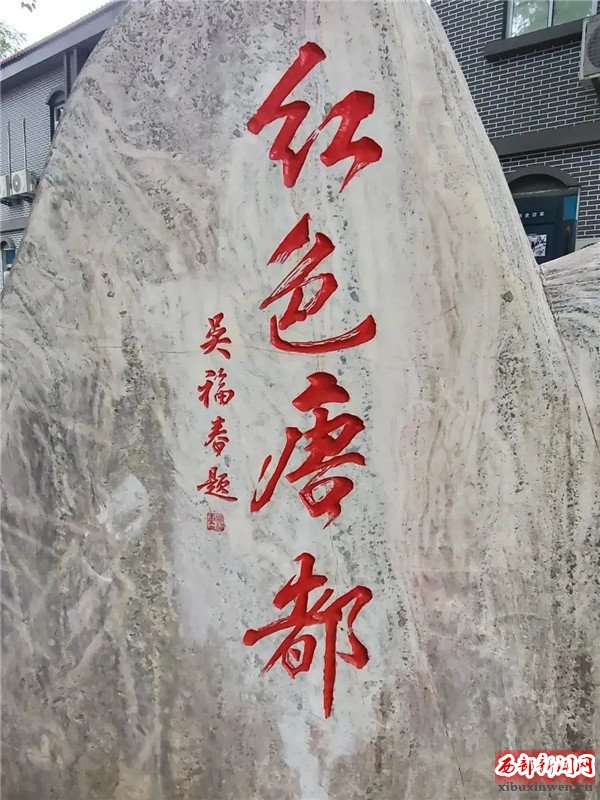 红色唐都
吴福春题
西部新闻网
xibuxinwen.cn